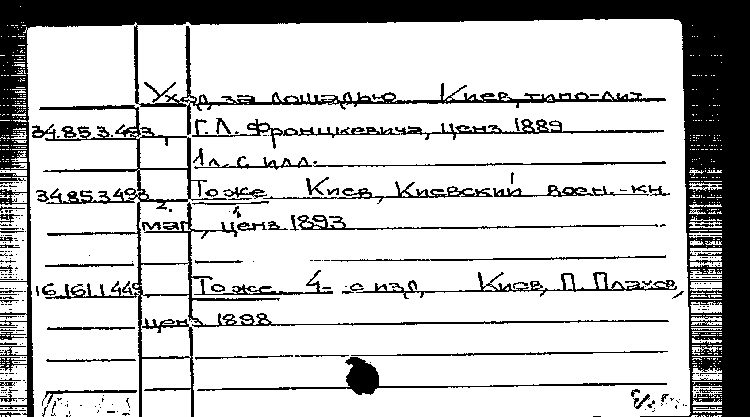 Уход за лошадью Киев, типо-лит.
34.85.3.493 1, Г.Л. Фронцкевича, ценз 1889
1л. с илл.
34.85.3.493 2. То же Киев, Киевский воен.-кн.
маг, ценз 1893
16.161.1.445 То же. 4-е изд, Киев, П. Плахов,
ценз 1898